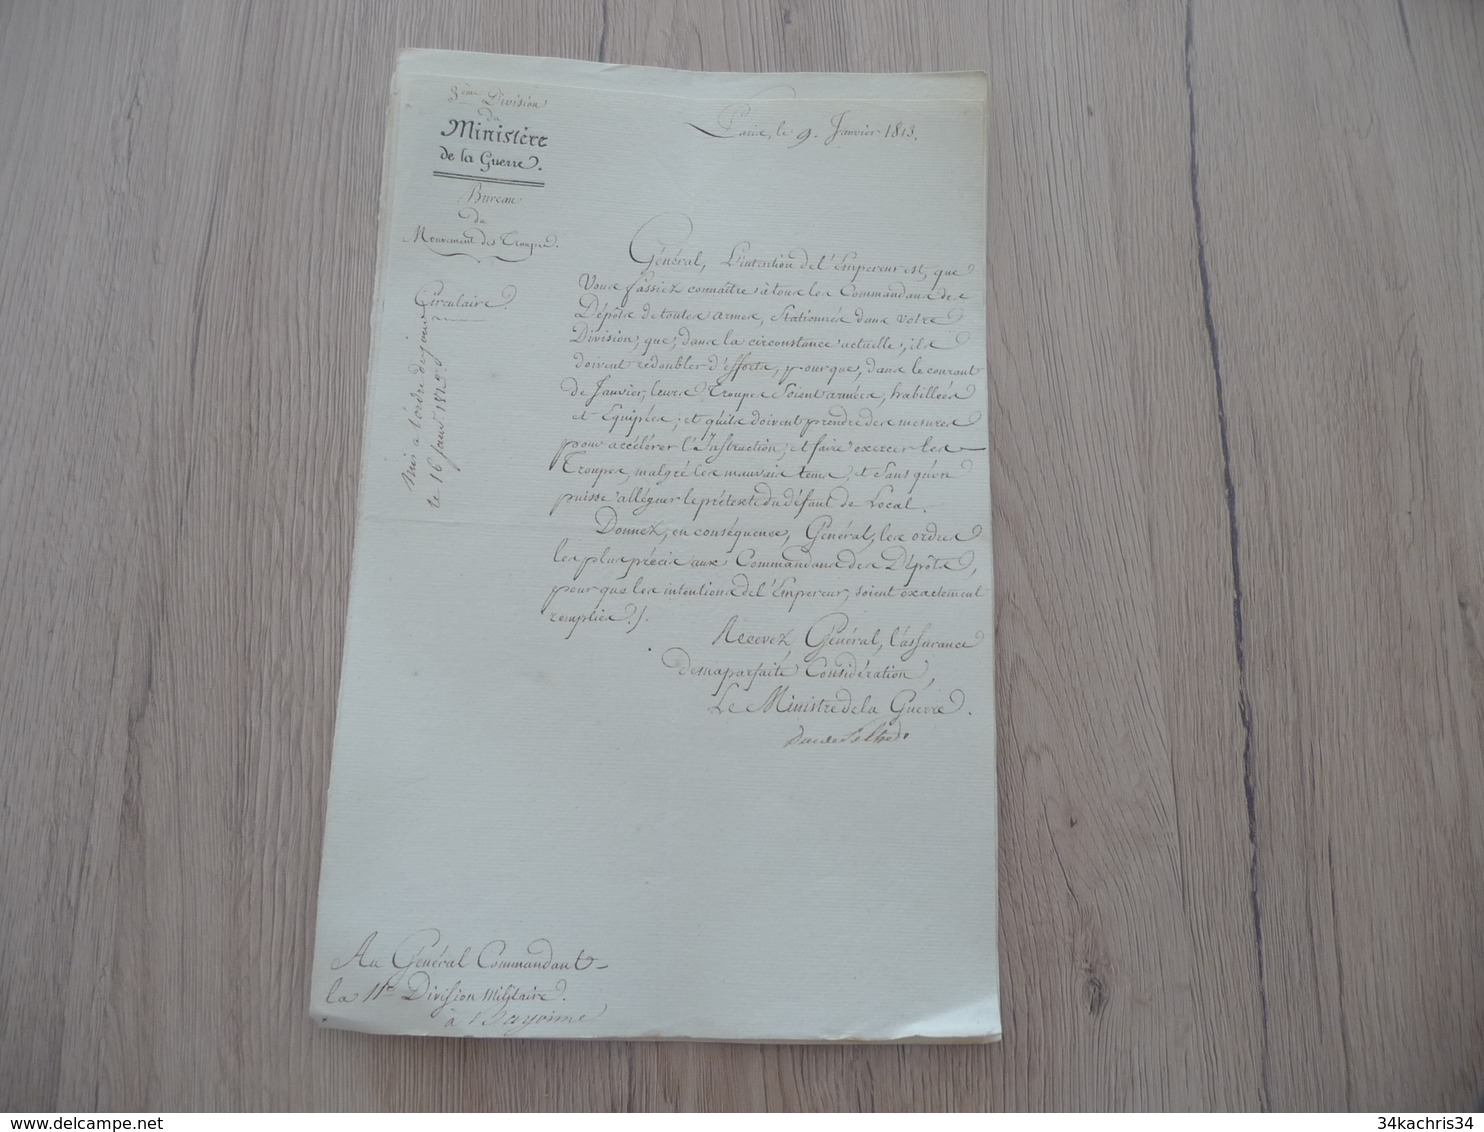 3ème Division
du
Ministère
de la Guerre.
Bureau
du
Mouvement des Troupes.
Circulaire.
Mis à l'ordre du jour
le 16 Janv. 1813.
Paris, le 9. Janvier 1813.
Général, L'intention de l'Empereur est, que
Vous fassiez connaître à tous les Commandans des
Dépôts de toutes armes, Stationnés dans votre
Division, que, dans la circonstance actuelle, ils
doivent redoubler d'efforts, pour que, dans le courant
de Janvier, leurs Troupes Soient armées, habillées
et Equipées; et qu'ils doivent prendre des mesures
pour accélérer l'Instruction, et faire exercer les
Troupes, malgré les mauvais tems, et Sans qu'on
puisse alléguer le prétexte du défaut de Local.
Donnez, en conséquence, Général, les ordres
les plus précis aux Commandans des Dépôts,
pour que les intentions de l'Empereur, soient exactement
remplies./.
Recevez Général, l'assurance
de ma parfaite Considération,
Le Ministre de la Guerre.
Duc de Feltre
Au Général Commandant
la 11e Division Militaire.
à Bayonne
34kachris34
delcampe.net
34kachris34